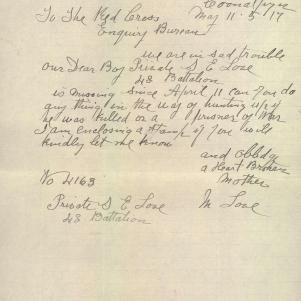 Coonalpyn
To The Red Cross May 11 · 5 · 17
Enquiry Bureau
we are in sad trouble
our Dear Boy Private S E Lose
48 Battalion
is missing since April 11 can you do
any thing in the way of hunting up if
he was killed or a prisoner of War
I am enclosing a stamp if you will
kindly let me know
and oblidg
a Heart Broken
Mother
No 4163 M Lose
Private S E Lose
48 Battalion